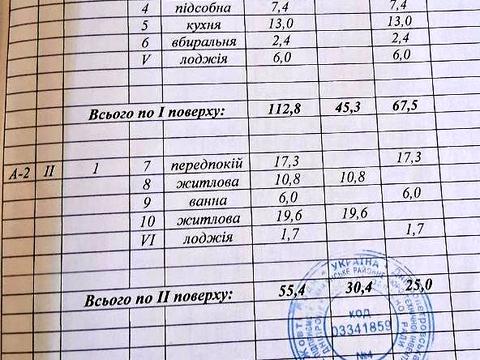 4 підсобна 7,4 7,4
5 кухня 13,0 13,0
6 вбиральня 2,4 2,4
V лоджія 6,0 6,0
Всього по I поверху: 112,8 45,3 67,5
А-2 II 1 7 передпокій 17,3 17,3
8 житлова 10,8 10,8
9 ванна 6,0 6,0
10 житлова 19,6 19,6
VI лоджія 1,7 1,7
Всього по II поверху: 55,4 30,4 25,0
УКРАЇНА
КОД
03341859
№1